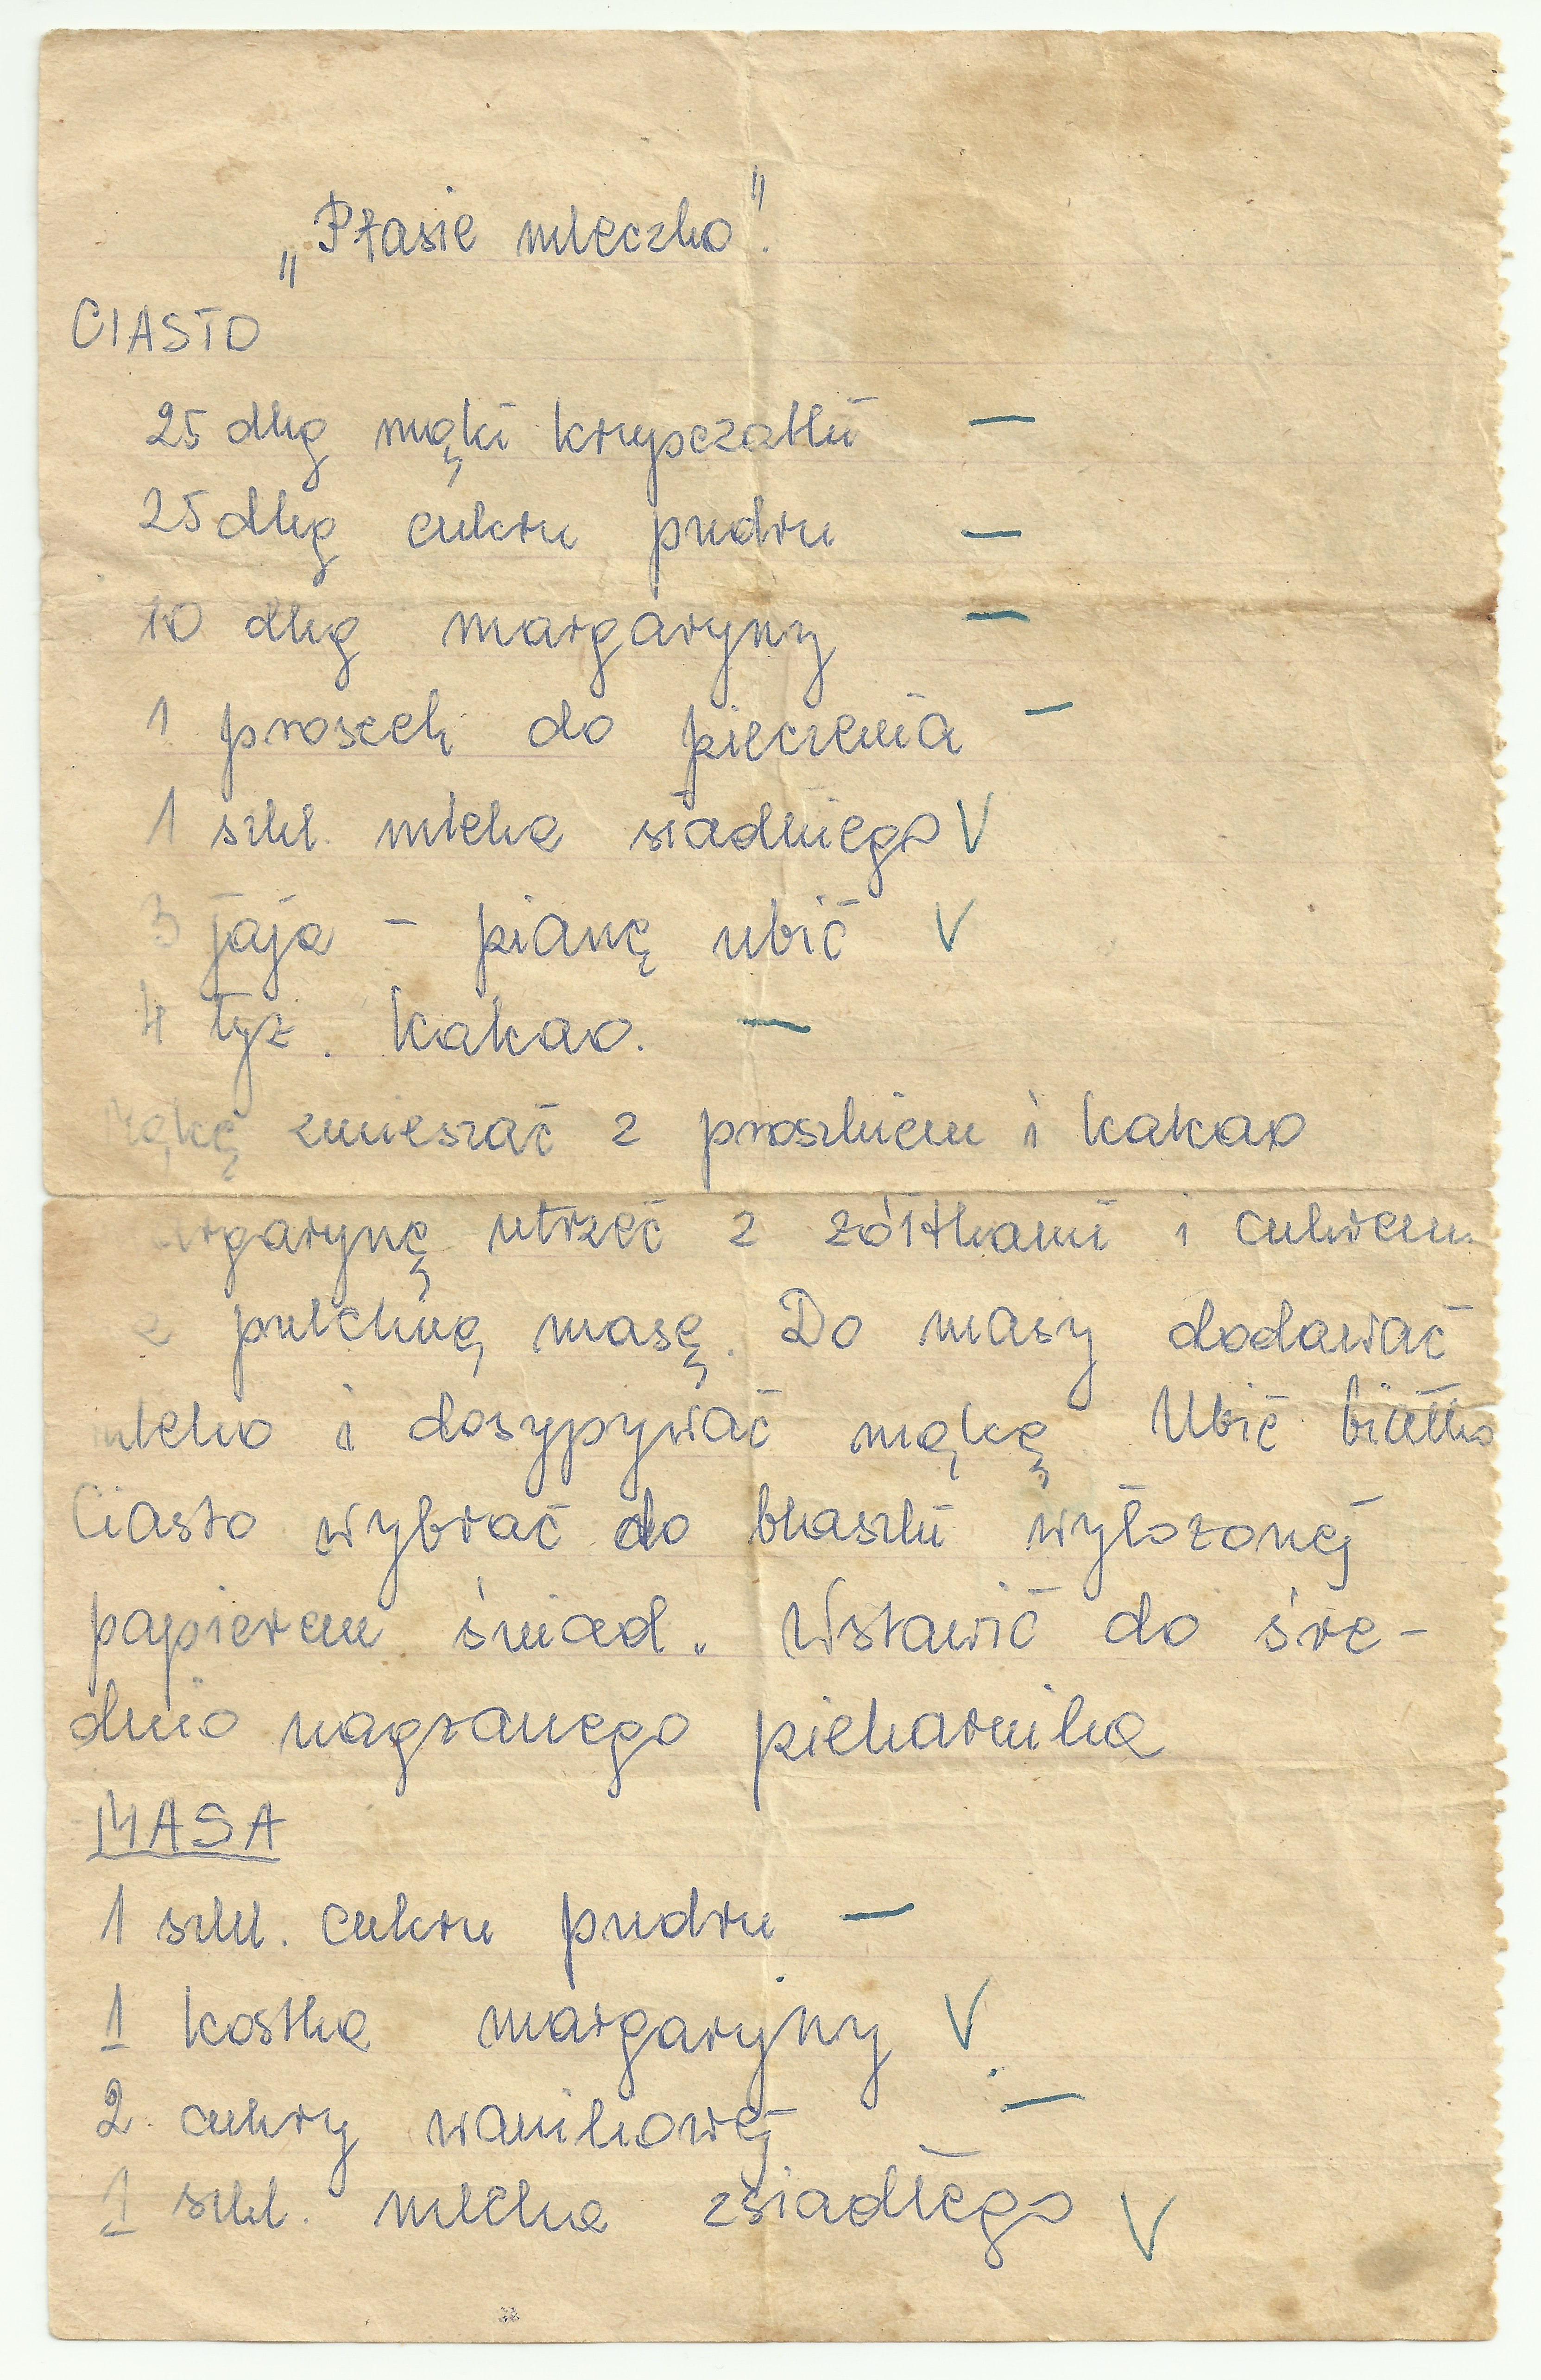 „Ptasie mleczko".
CIASTO
25 dkg mąki krupczatki —
25 dkg cukru pudru —
10 dkg margaryny —
1 proszek do pieczenia —
1 szkl. mleka siadłego V
3 jaja – pianę ubić V
4 łyż. kakao. —
Mąkę zmieszać z proszkiem i kakao
margarynę utrzeć z żółtkami i cukrem
pulchną masę. Do masy dodawać
mleko i dosypywać mąkę. Ubić białko
Ciasto wybrać do blaszki wyłożonej
papierem śniad. Wstawić do śre-
dnio nagrzanego piekarnika
MASA
1 szkl. cukru pudru —
1 kostka margaryny V
2 cukry waniliowej —
1 szkl. mleka zsiadłego V